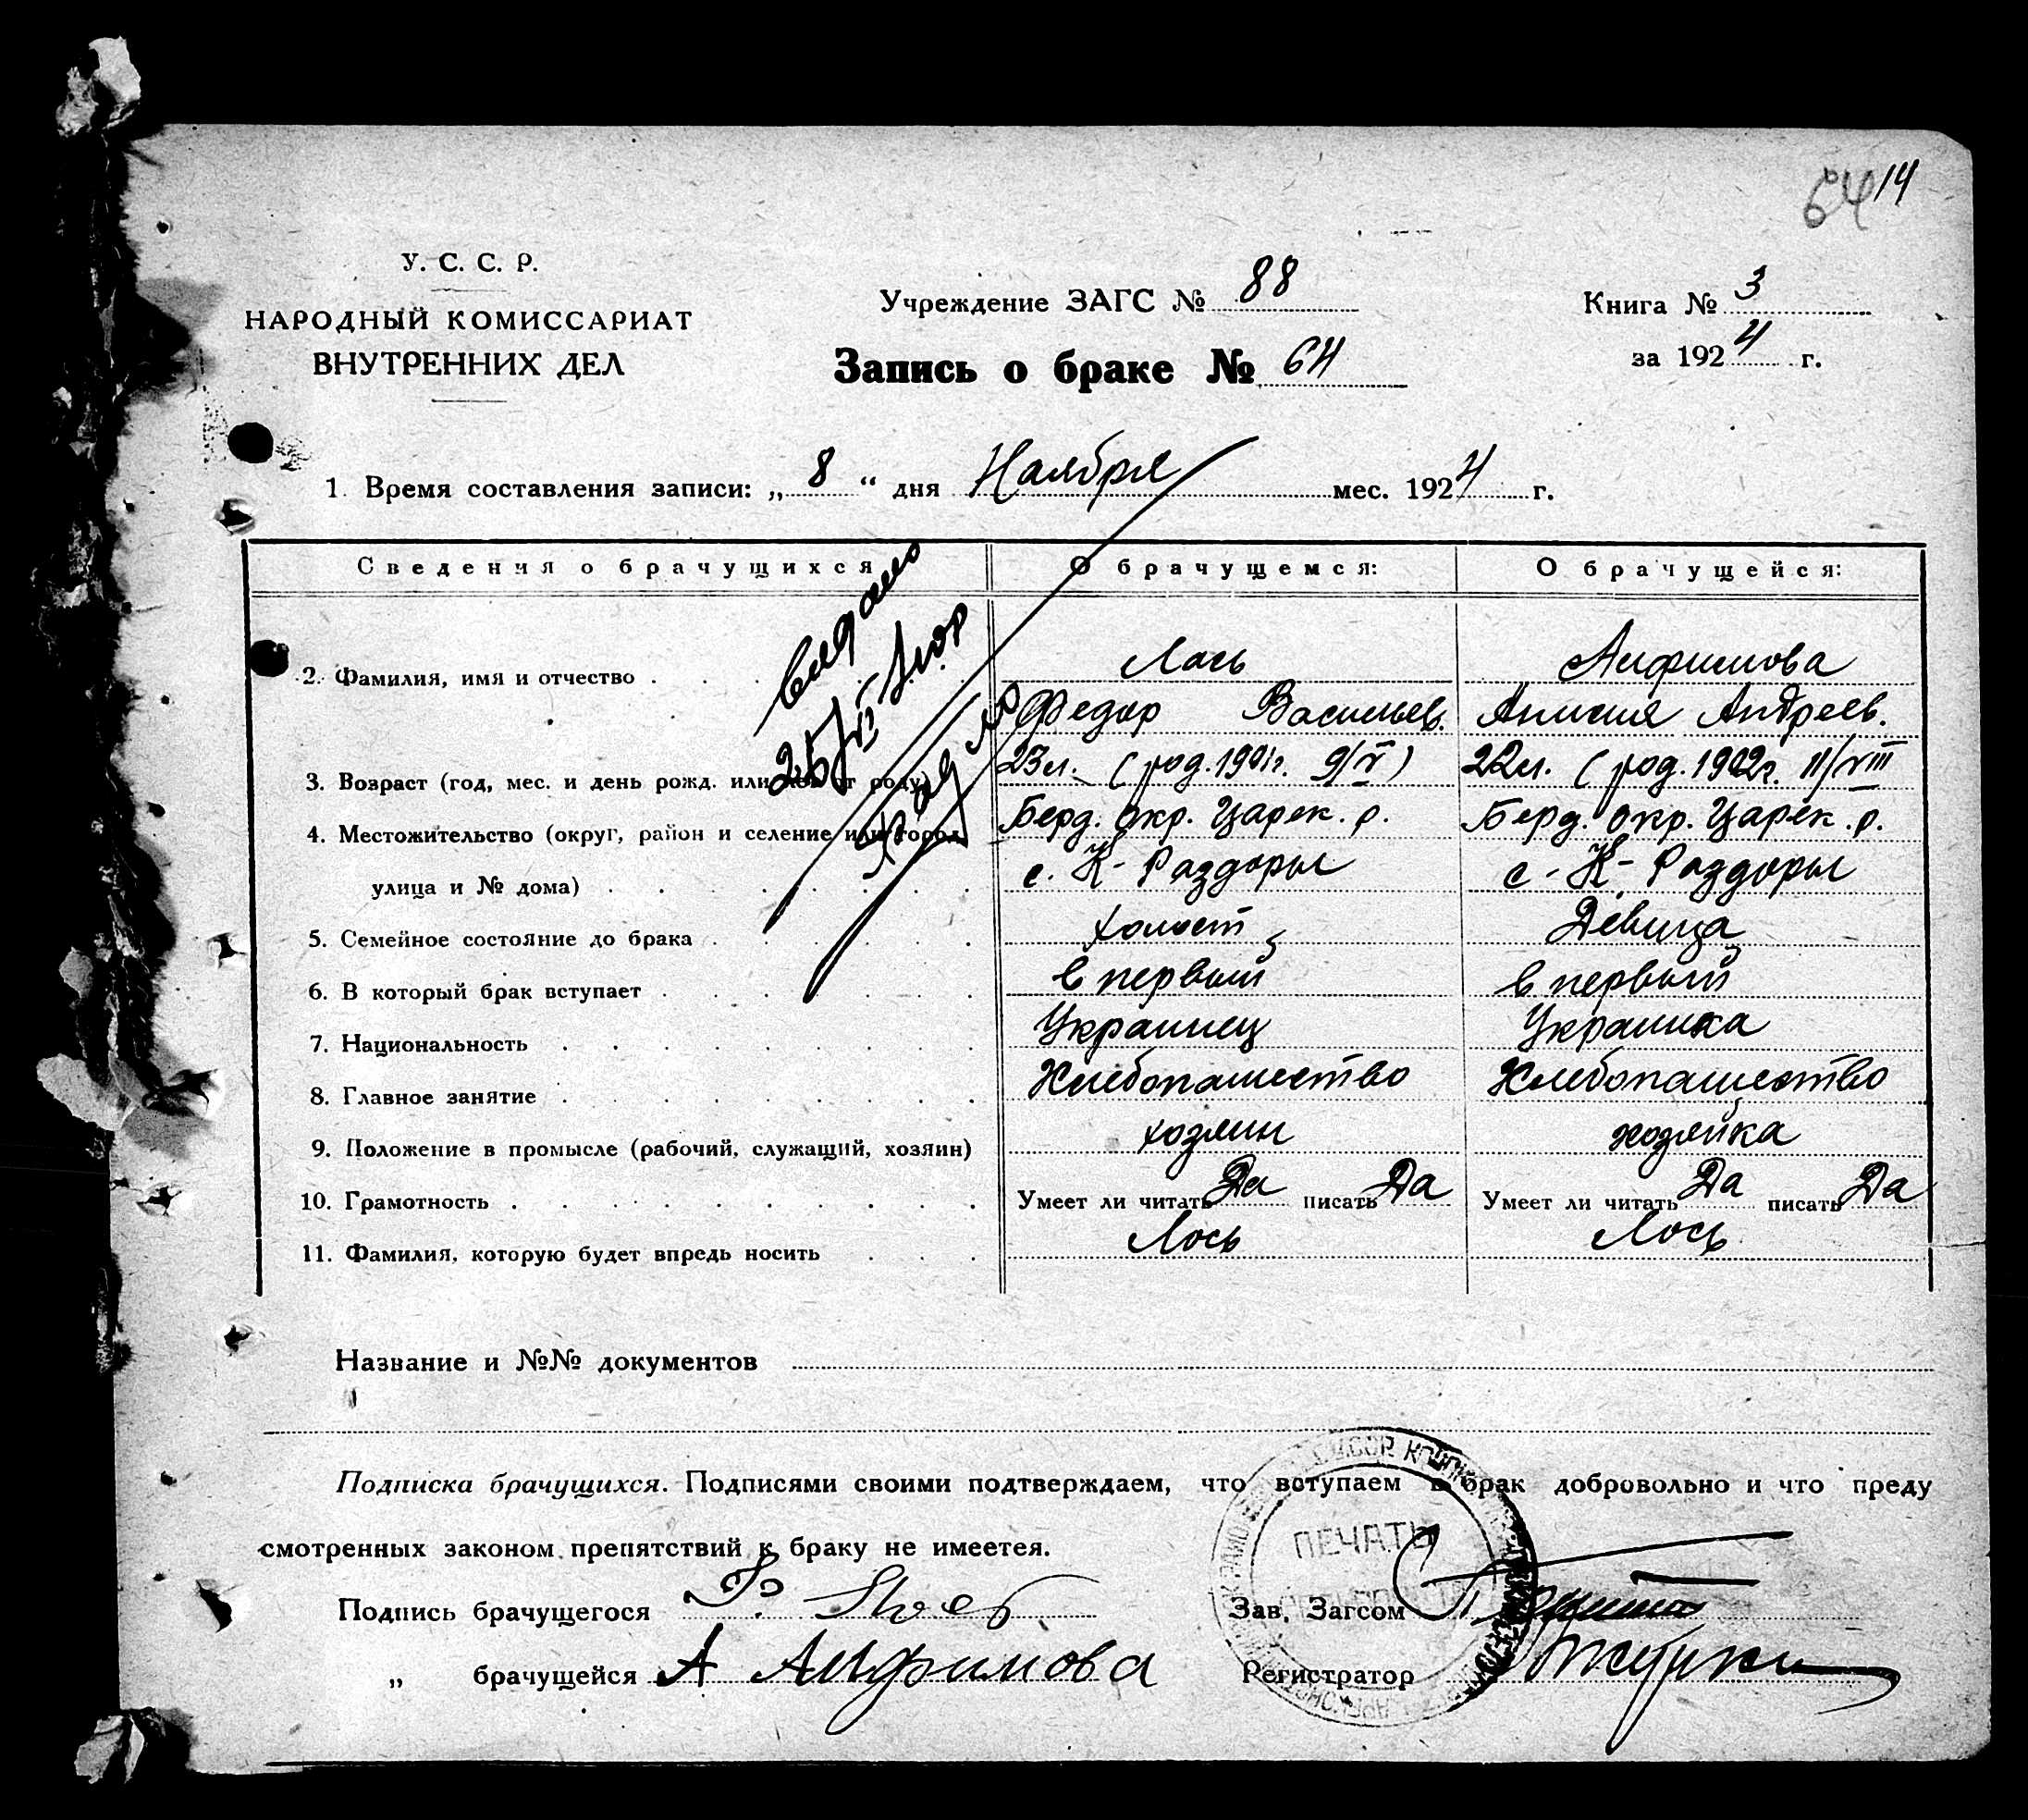 64 14
У. С. С. Р.
НАРОДНЫЙ КОМИССАРИАТ
ВНУТРЕННИХ ДЕЛ
Учреждение ЗАГС № 88
Книга № 3
за 1924 г.
Запись о браке № 64
1. Время составления записи: „ 8 “ дня Наября мес. 1924 г.
Сведения о брачущихся О брачущемся: О брачущейся:
Видано
2. Фамилия, имя и отчество Лось Анфимова
Федор Васильев. Анисия Андреев.
3. Возраст (год, мес. и день рожд. или лет от роду) 23 л. (род. 1901г. 9/V) 22 л. (род. 1902г. 11/VIII
4. Местожительство (округ, район и селение или город, Берд. окр. Царек. р. Берд. окр. Царек. р.
улица и № дома) с. К-Раздоры с. К-Раздоры
5. Семейное состояние до брака холост Девица
6. В который брак вступает в первый в первый
7. Национальность Украинец Украинка
8. Главное занятие Хлебопашество Хлебопашество
9. Положение в промысле (рабочий, служащий, хозяин) хозяин хозяйка
10. Грамотность Умеет ли читать Да писать Да Умеет ли читать Да писать Да
11. Фамилия, которую будет впредь носить Лось Лось
Название и №№ документов
Подписка брачущихся. Подписями своими подтверждаем, что вступаем в брак добровольно и что преду
смотренных законом препятствий к браку не имеетея.
ПЕЧАТЬ
Подпись брачущегося Ф. Лось Зав. Загсом
„ брачущейся А Анфимова Регистратор